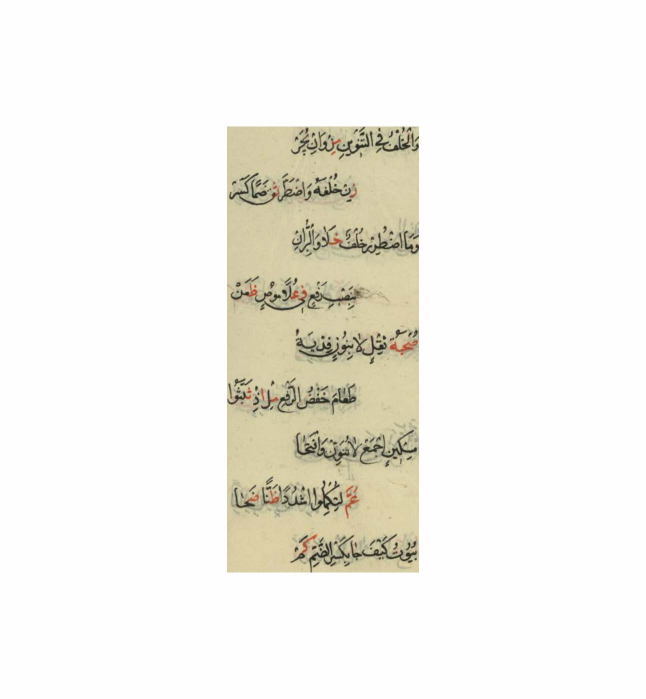 وَالْخُلْفُ فِي التَّنْوِينِ مِزْ وَإِنْ يُجَرْ
زِنْ خُلْفُهُ وَاضْطُرَّ ثِقْ ضَمًّا كَسَرْ
وَمَا اضْطُرِرْ خُلْفٌ خَلَا وَالْبِرُّ أَنْ
بِنَصْبِ رَفْعٍ فِي عُلًا مُوصٍ ظَعَنْ
صُحْبَةُ ثَقِّلْ لَا تُنَوِّنْ فِدْيَةُ
طَعَامُ خَفْضُ الرَّفْعِ مِلْ إِذْ ثَبَّتُوا
مِسْكِينِ اجْمَعْ لَا تُنَوِّنْ وَافْتَحَا
عَمَّ لِتُكْمِلُوا اشْدُدًا ظَنًّا صَحَا
بُيُوتُ كَيْفَ جَا بِكَسْرِ الضَّمِّ كَمْ